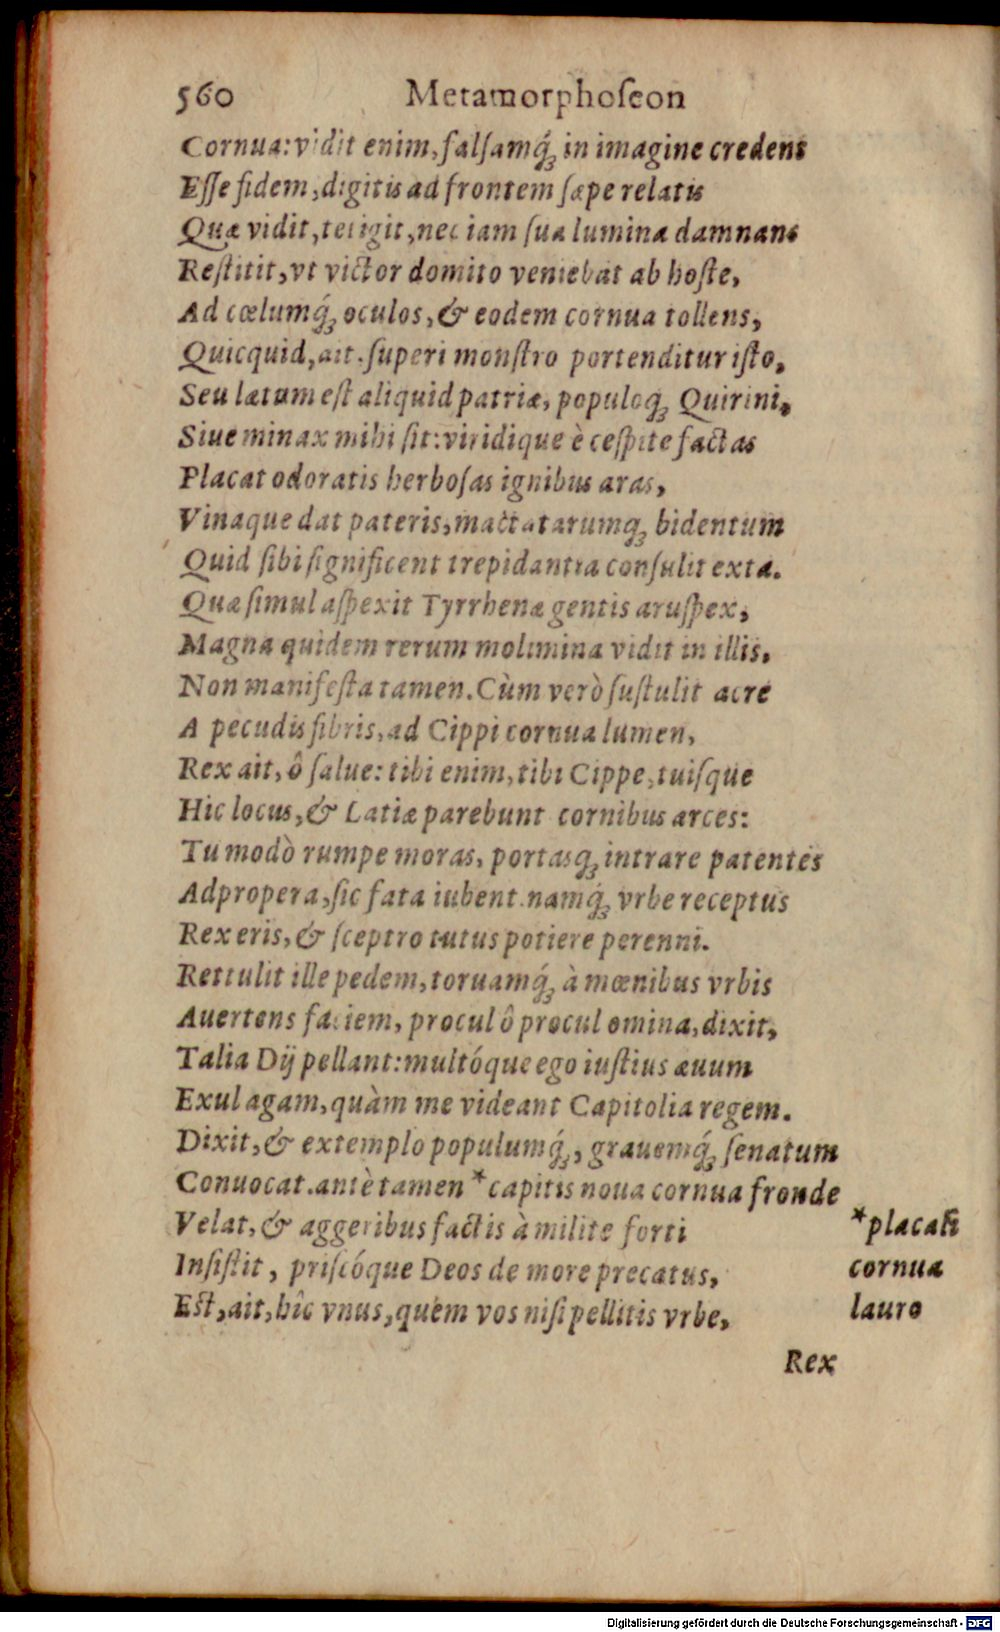 560 Metamorphoſeon
Cornua: vidit enim, falſamq́; in imagine credens
Eſſe fidem, digitis ad frontem ſæpe relatis
Quæ vidit, tetigit, nec iam ſua lumina damnans
Reſtitit, vt victor domito veniebat ab hoſte,
Ad cœlumq́; oculos, & eodem cornua tollens,
Quicquid, ait. ſuperi monſtro portenditur iſto,
Seu lætum eſt aliquid patriæ, populoq; Quirini,
Siue minax mihi ſit: viridique è ceſpite factas
Placat odoratis herboſas ignibus aras,
Vinaque dat pateris, mactatarumq; bidentum
Quid ſibi ſignificent trepidantia conſulit exta.
Quæ ſimul aſpexit Tyrrhenæ gentis aruſpex,
Magna quidem rerum molimina vidit in illis,
Non manifeſta tamen. Cùm verò ſuſtulit acre
A pecudis fibris, ad Cippi cornua lumen,
Rex ait, ô ſalue: tibi enim, tibi Cippe, tuiſque
Hic locus, & Latiæ parebunt cornibus arces:
Tu modò rumpe moras, portasq; intrare patentes
Adpropera, ſic fata iubent. namq́; vrbe receptus
Rex eris, & ſceptro tutus potiere perenni.
Rettulit ille pedem, toruamq́; à mœnibus vrbis
Auertens faciem, procul ô procul omina, dixit,
Talia Dij pellant: multóque ego iuſtius æuum
Exul agam, quàm me videant Capitolia regem.
Dixit, & extemplo populumq́;, grauemq́; ſenatum
Conuocat. antè tamen *capitis noua cornua fronde
Velat, & aggeribus factis à milite forti
*placali
Inſiſtit, priſcóque Deos de more precatus,
cornua
Eſt, ait, hîc vnus, quem vos niſi pellitis vrbe,
lauro
Rex
Digitalisierung gefördert durch die Deutsche Forschungsgemeinschaft - DFG